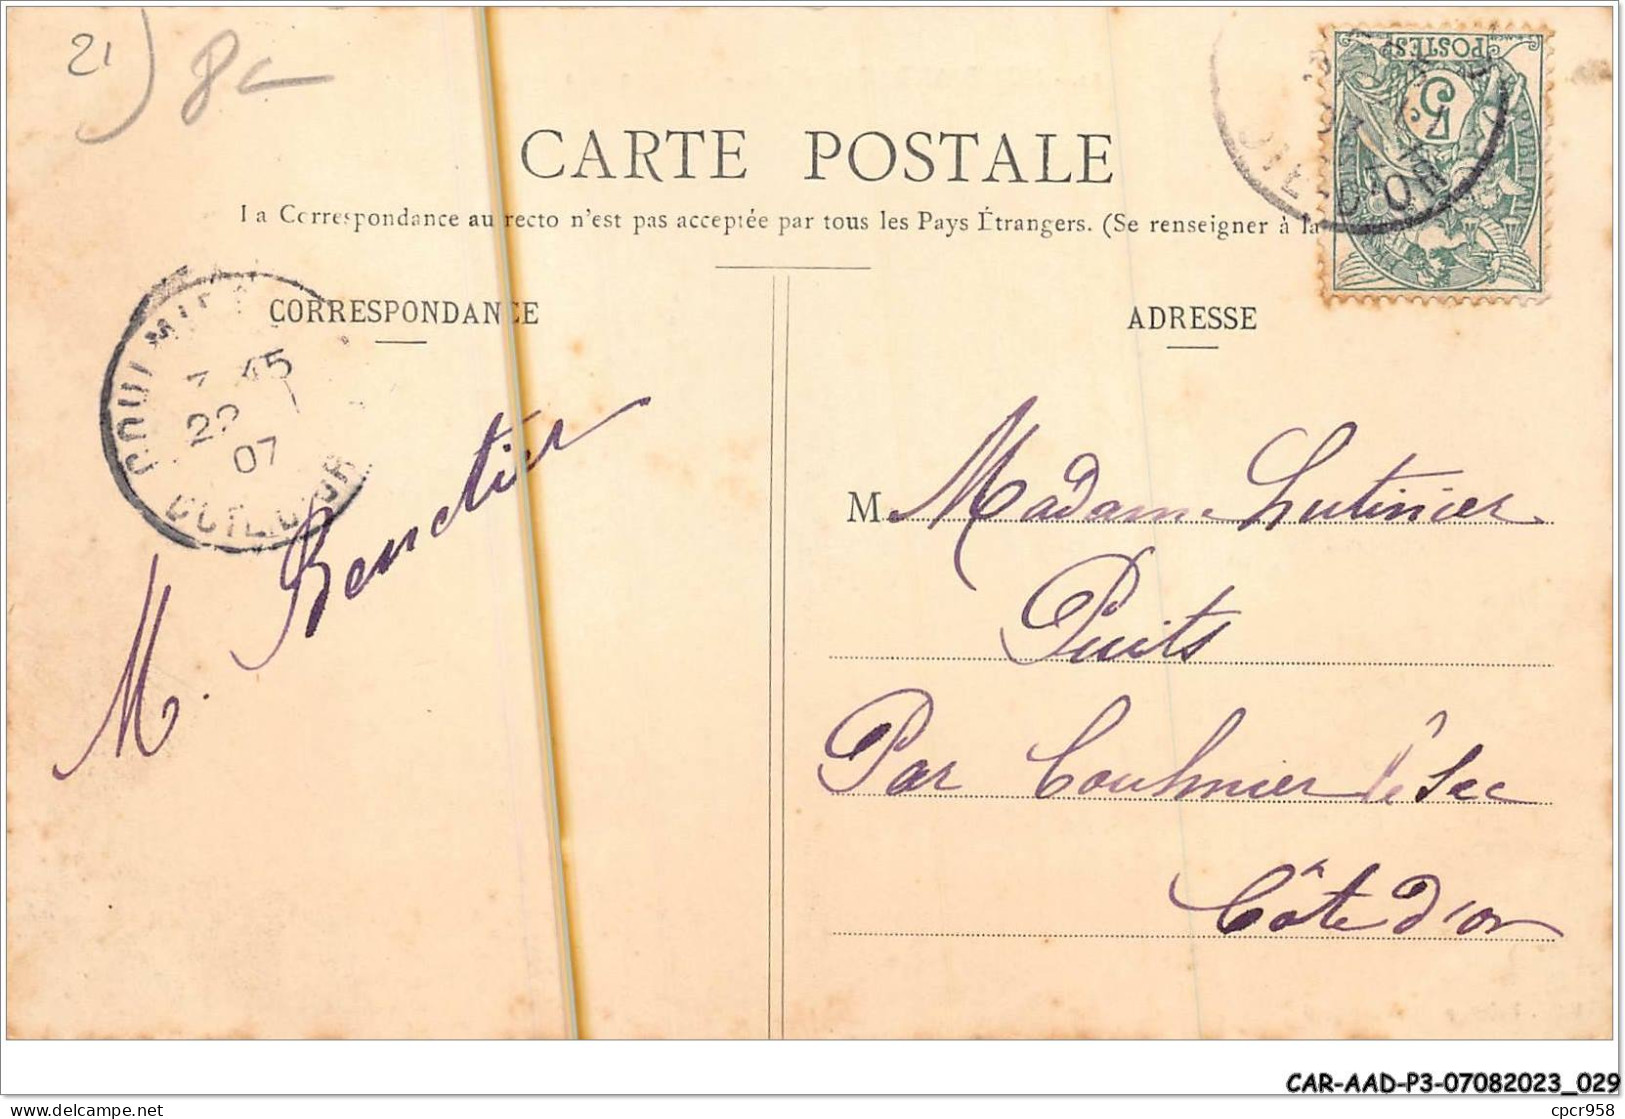 21
8
CARTE POSTALE
La Correspondance au recto n'est pas acceptée par tous les Pays Étrangers. (Se renseigner à la
CORRESPONDANCE
ADRESSE
POSTES
5
COTE-D'OR
7 45
22
07
COTE-D'OR
M. Benetier
M. Madame Lutinier
Puits
Par Coulmier le Sec
Côte d'or
CAR-AAD-P3-07082023_029
delcampe.net
cpcr958